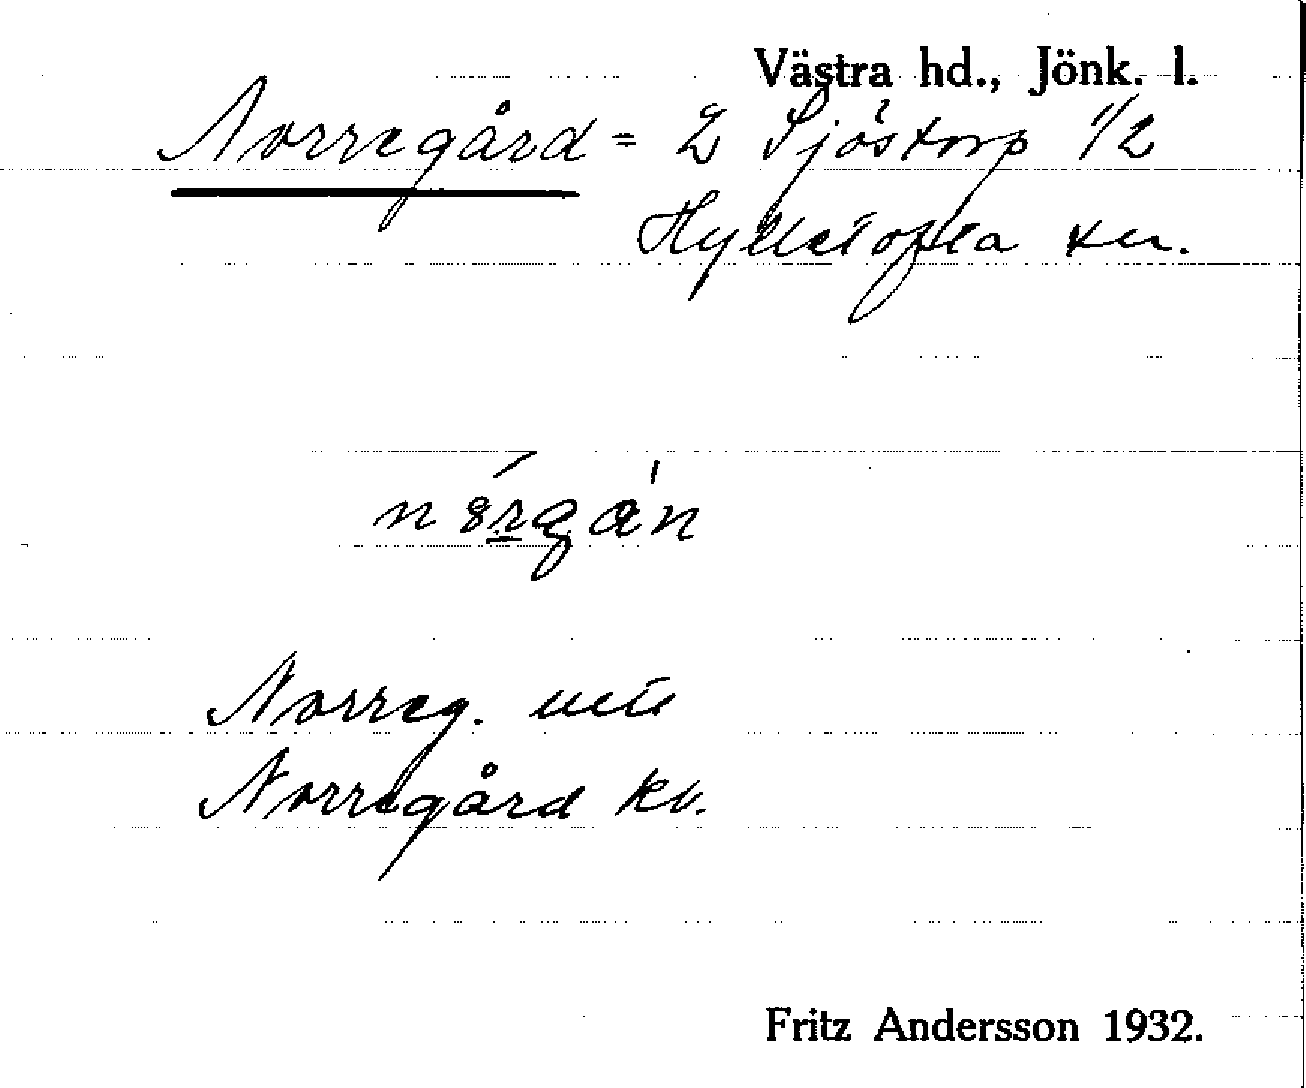 Västra hd., Jönk. l.
Norregård = 2 Sjöstorp 1/2
Hylletofta sn.
Norreg.
Norregård kv.
Fritz Andersson 1932.